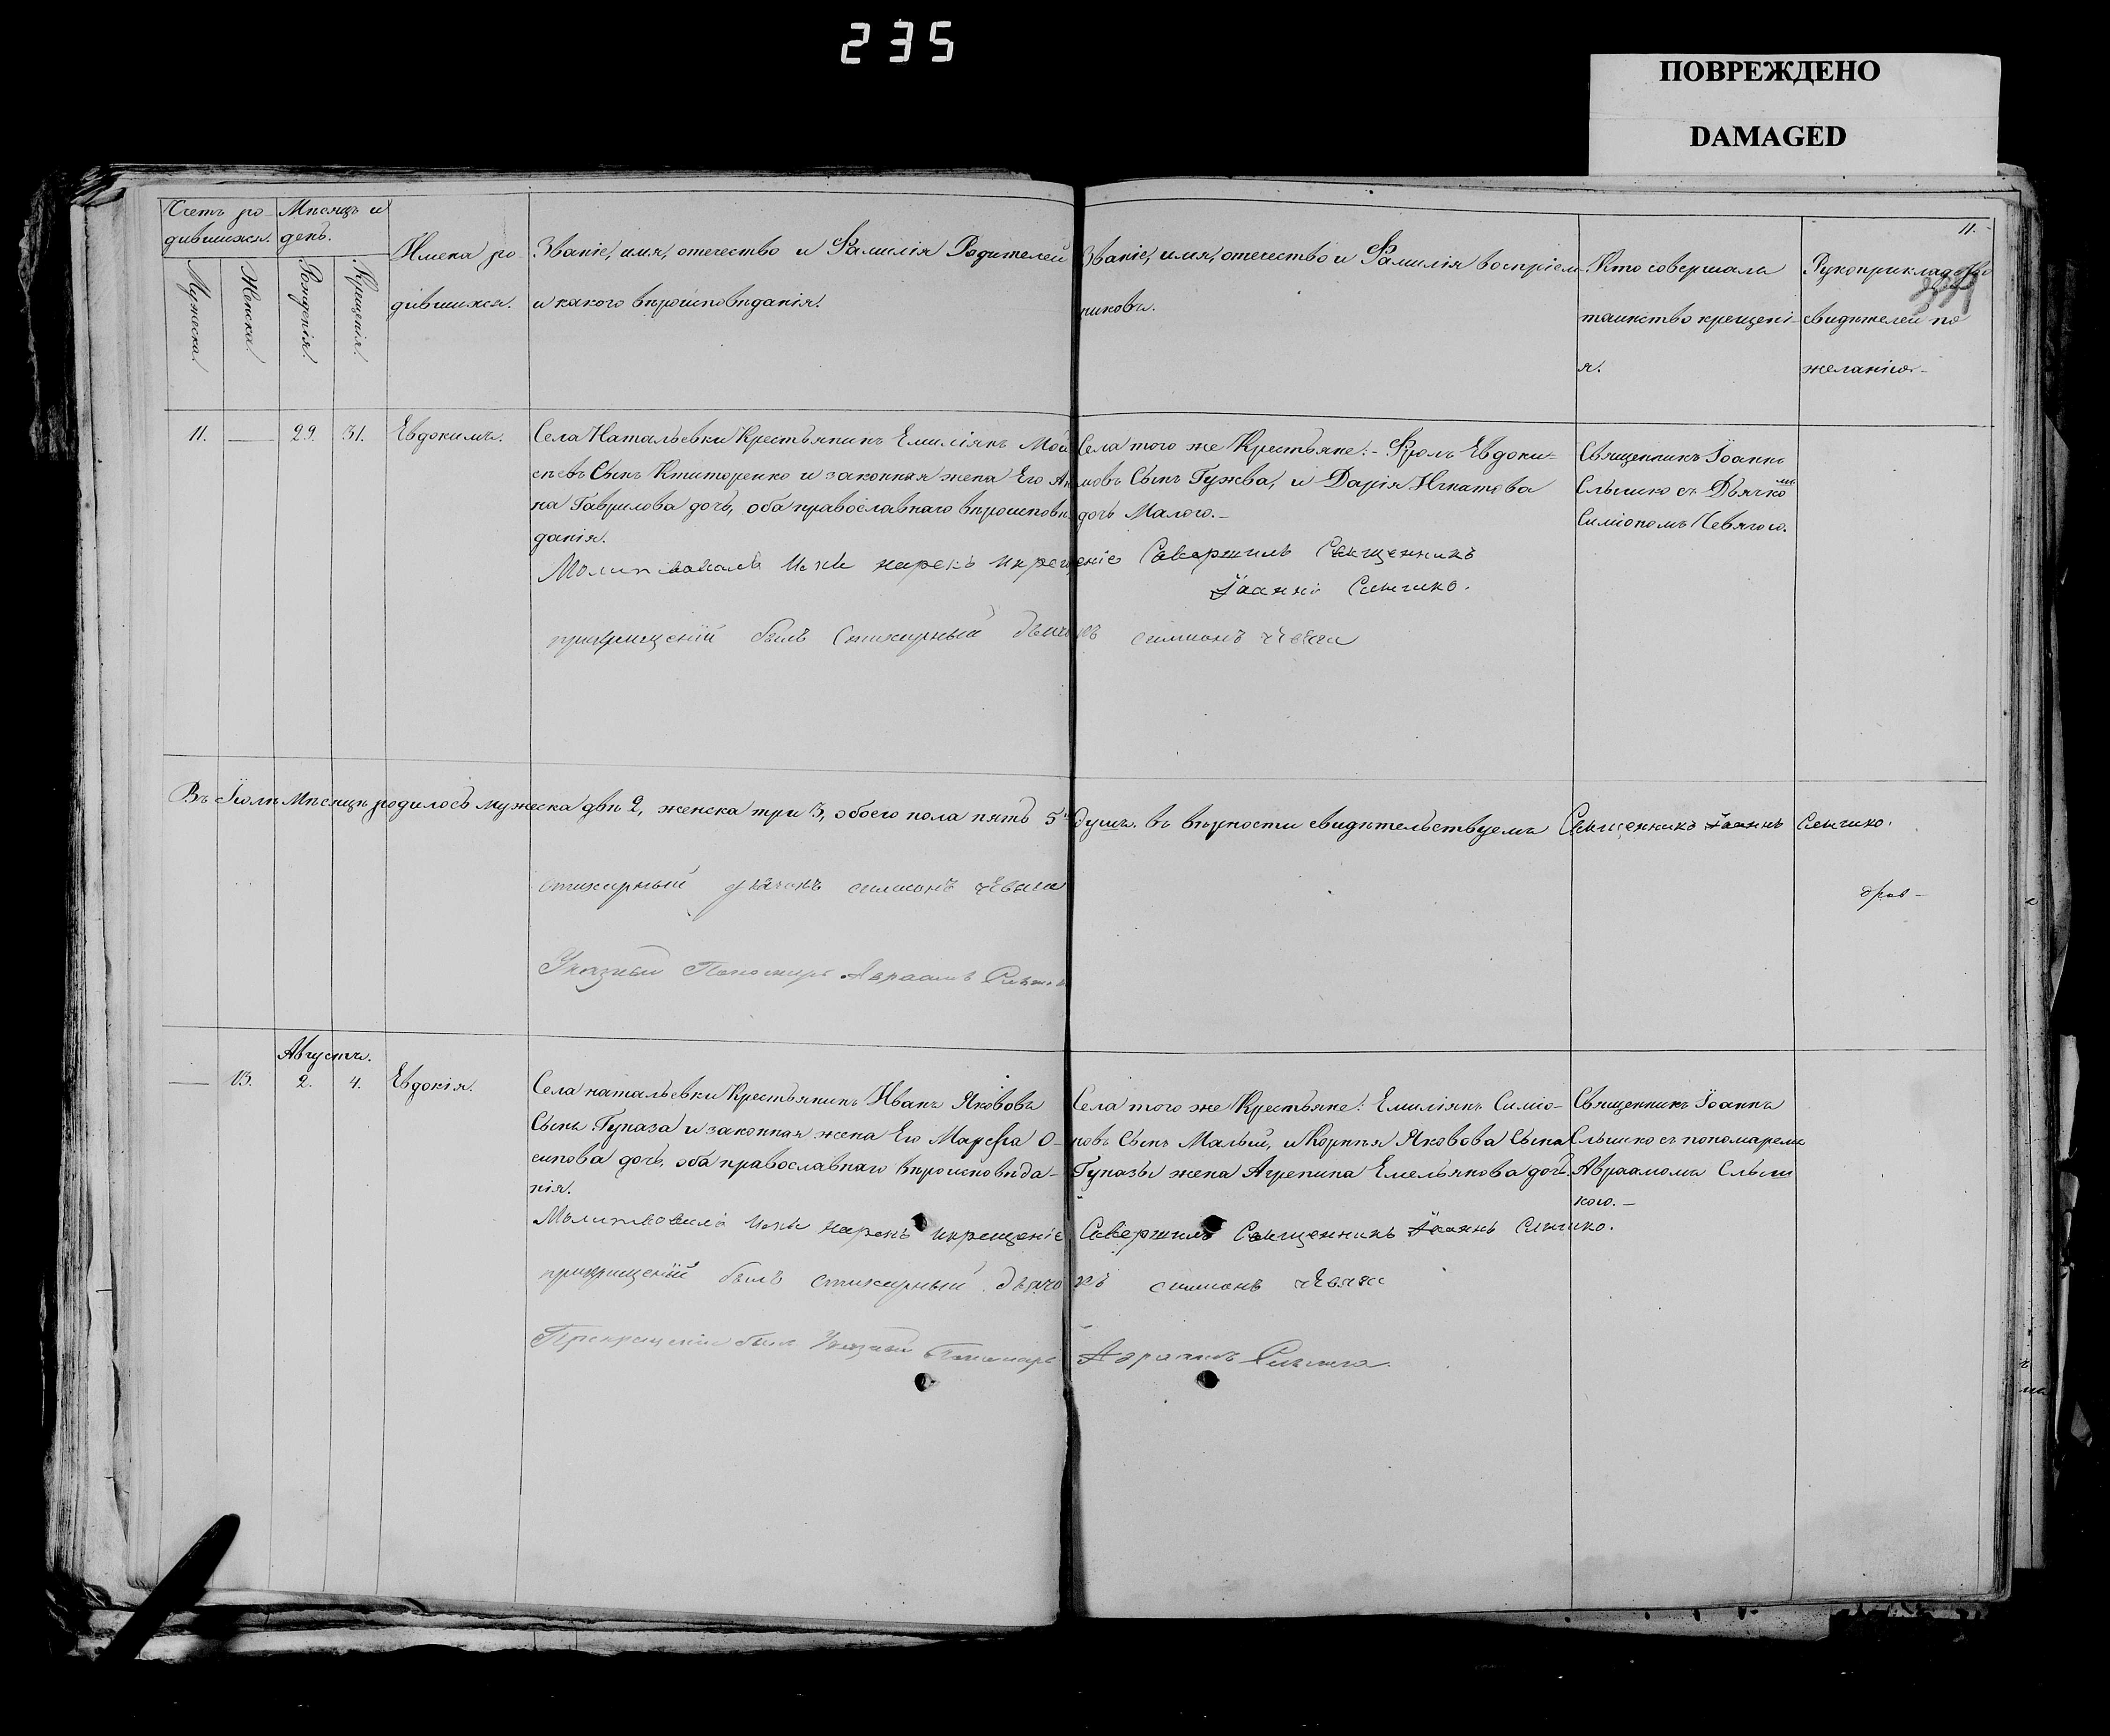 235
ПОВРЕЖДЕНО
DAMAGED
11.
Счетъ ро-
дившихся.
Мѣсяцъ и
день.
Мужеска.
Женска.
Рожденія.
Крещенія.
Имена ро-
дившихся.
Званіе, имя, отечество и Фамилія Родителей
и какого вѣроисповѣданія.
Званіе, имя, отечество и Фамилія воспріем-
никовъ.
Кто совершалъ
таинство крещені-
я.
Рукоприкладство
свидѣтелей по
желанію.-
11.
29.
31.
Евдокимъ.
Села Натальевки Крестьянинъ Емиліянъ Мои
сѣевъ Сынъ Ктиторенко и законная жена Его Ан
на Гаврилова дочь, оба православнаго вѣроисповѣ
данія.
Села того же Крестьяне:- Фролъ Евдоки-
мовъ Сынъ Гужва, и Дарія Игнатова
дочь Малого.-
Священникъ Іоаннъ
Слышко съ Дьячко
мъ
Симіономъ
Молитвовалъ имя нарекъ и крещеніе Совершилъ Священникъ
Іоаннъ Слышко.
при крещеніи былъ Стихарный дьячокъ симионъ
Въ Іюлѣ Мѣсяцѣ родилось мужеска двѣ 2, женска три 3, обоего пола пять 5 душъ. въ вѣрности свидѣтельствуемъ Священникъ Іоаннъ Слышко.
стихарный дьячокъ симионъ
Указный Пономарь Авраамъ
Августъ.
13.
2.
4.
Евдокія.
Села натальевки Крестьянинъ Иванъ Яковов
Сынъ Гупаза и законная жена Его Марѳа О-
сипова дочь, оба православнаго вѣроисповѣда-
нія.
Села того же Крестьяне: Емиліянъ Симіо-
новъ Сынъ Малый, и Корнѣя Яковова Сына
Гупазы жена Агрепина Емельянова дочь.
Священникъ Іоаннъ
Слышко съ пономаремъ
Авраамомъ Слыш
кою.-
Молитвовалъ имя нарекъ и крещеніе Совершилъ Священникъ Іоаннъ Слышко.
при крещеніи былъ стихарный дьячокъ симионъ
При крещеніи былъ Указный Пономарь Авраамъ Слышко.